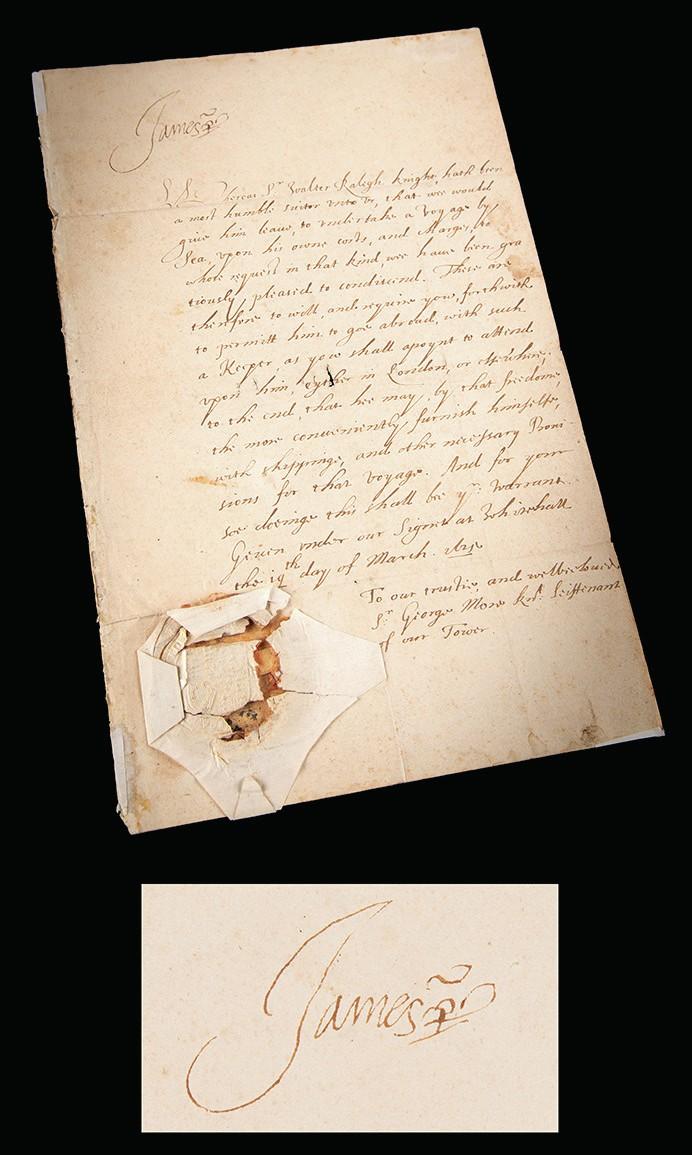 James R
Whereas Sr. Walter Ralegh knight, hath been
a most humble suitor vnto vs, that wee would
giue him leaue, to vndertake a Voyage by
Sea, vpon his owne costs, and Charges, to
whose request in that kind, wee haue been gra
tiously pleased to condiscend. These are
therfore to will, and require yow, forthwith
to permitt him to goe abroad, with such
a Keeper, as yow shall apoynt to attend
vpon him, eyther in London, or elsewhere,
to the end, that hee may, by that freedome,
the more conveniently furnish himselfe,
with shippinge, and other necessary Proui
sions for that voyage. And for your
soe doeinge this shall be yr: warrant.
Geuen vnder our Signet at Whitehall
the 19th day of March. 1615
To our trustie, and welbeloued
Sr: George More knt: Leiftenant
of our Tower.
James R